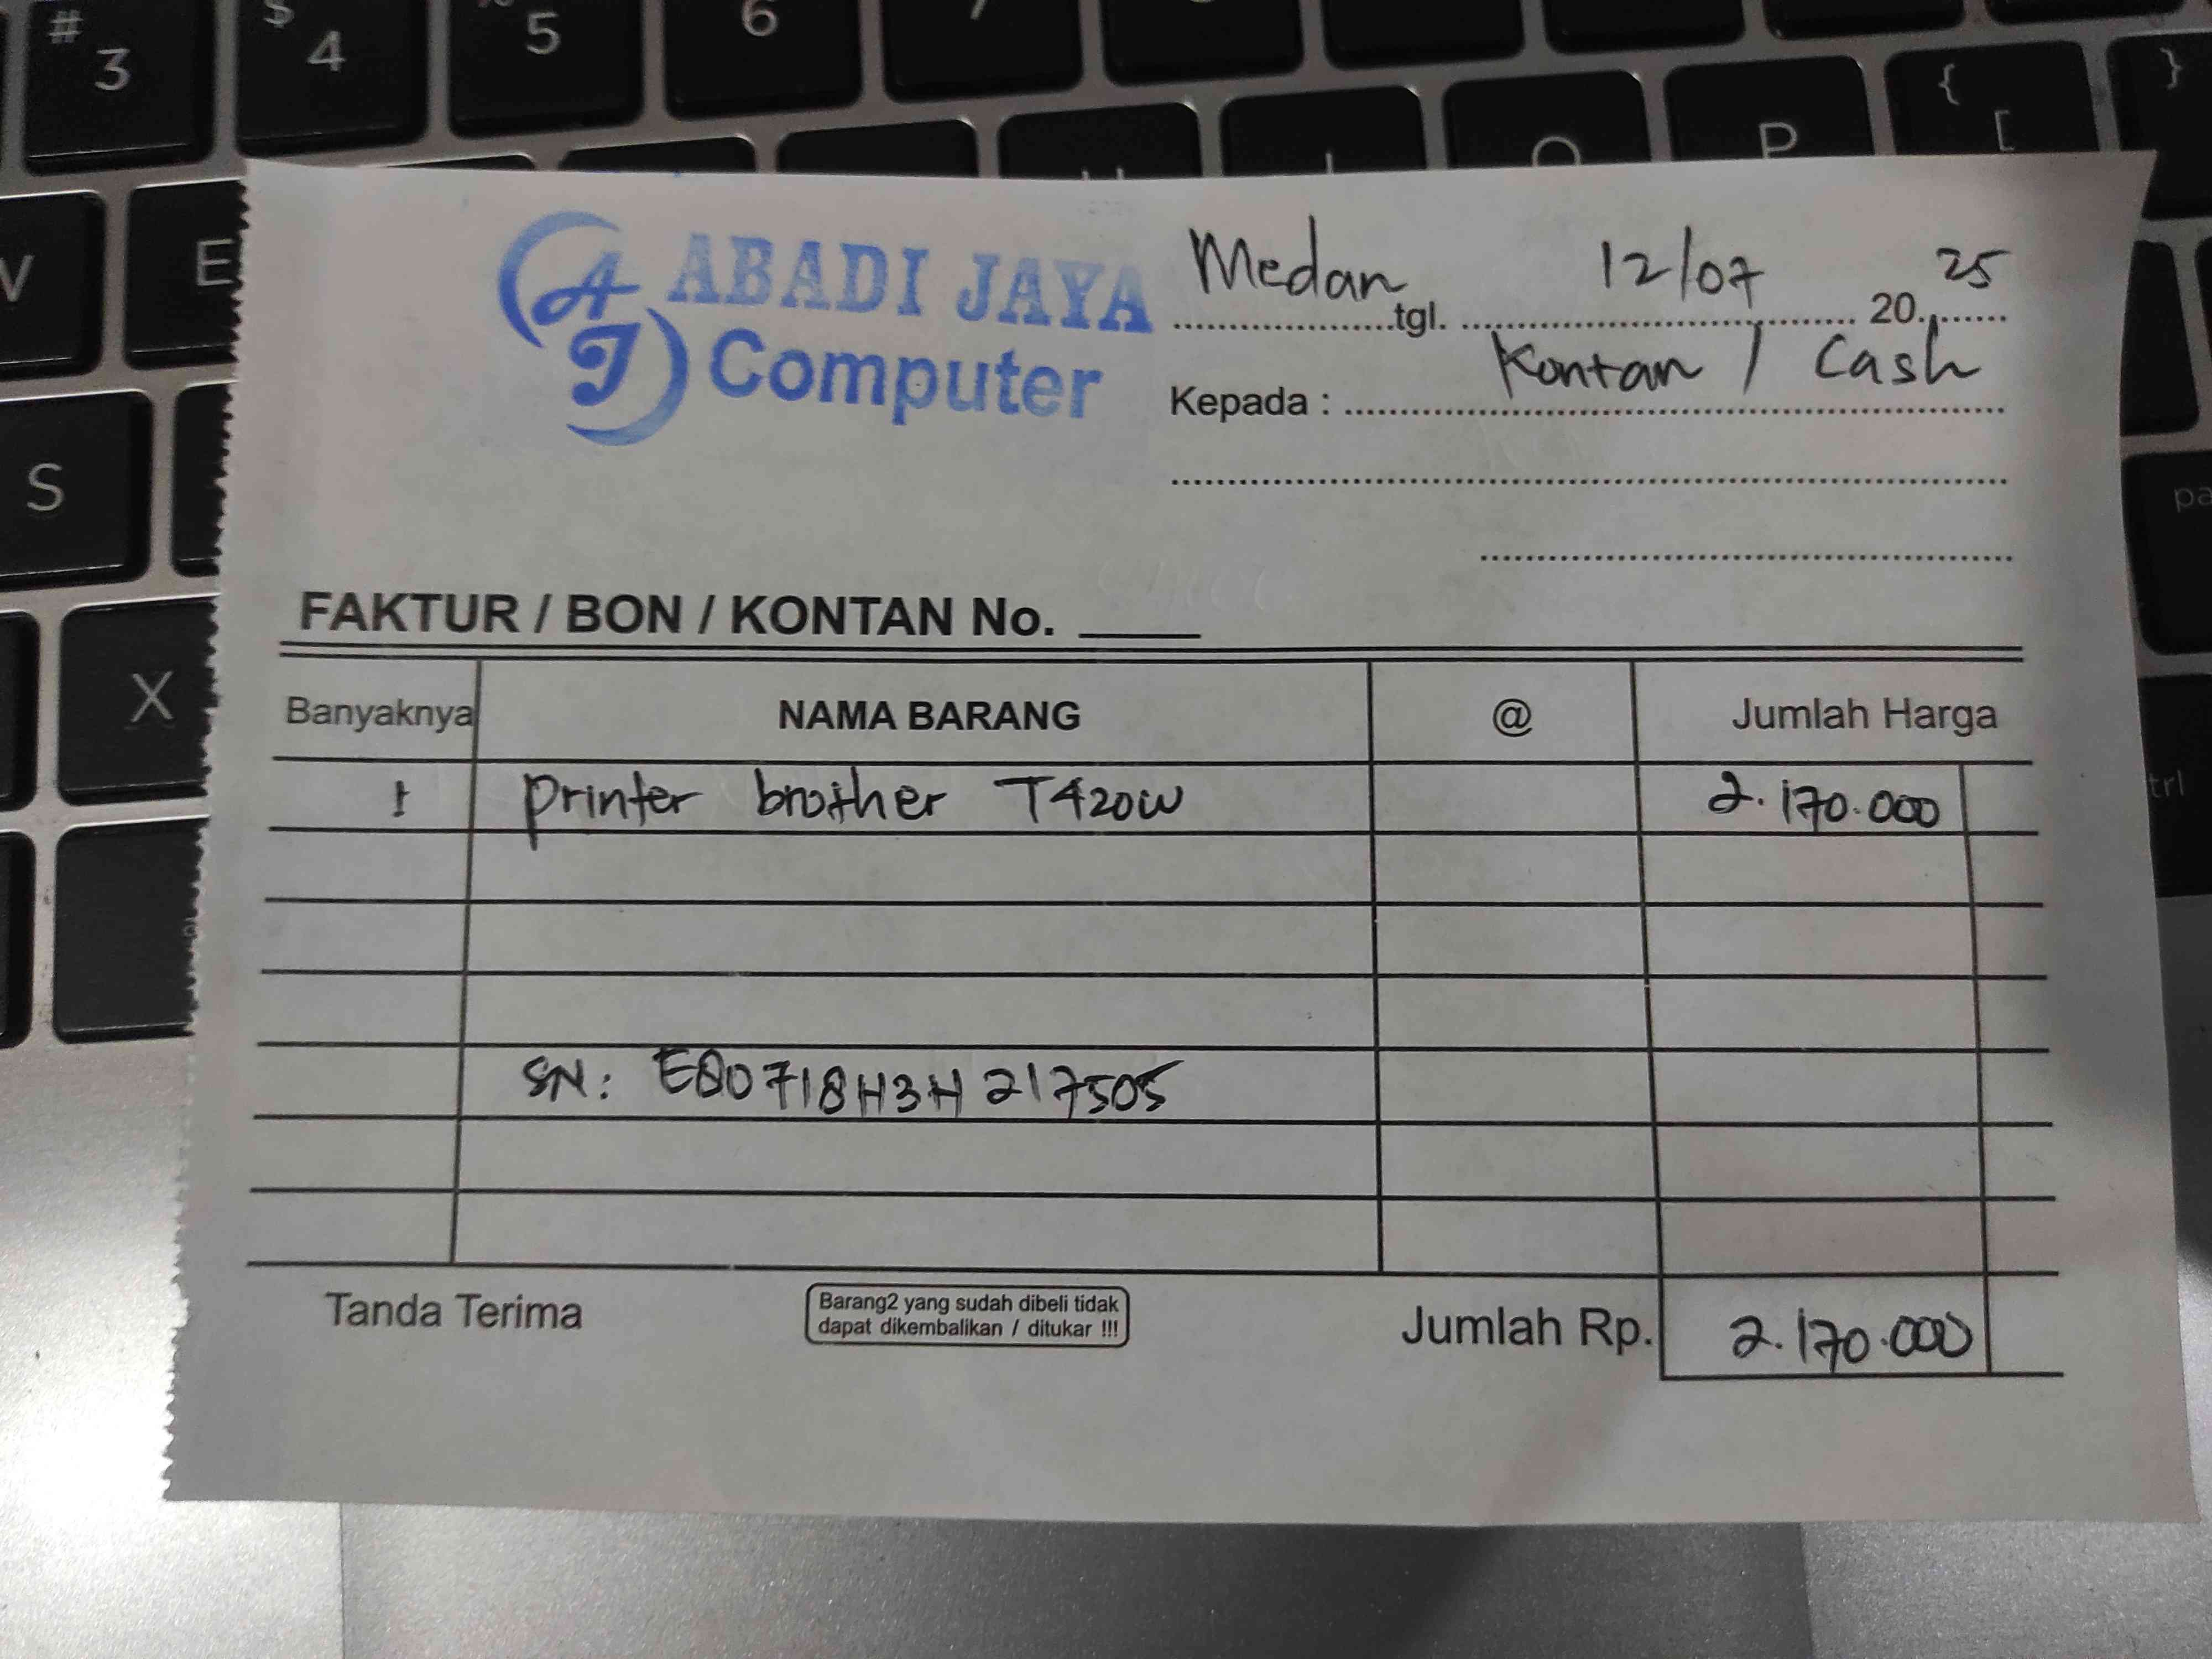 # 3 $ 4 5 6 7
{ [ }
E O P
S
X
ABADI JAYA
Computer
AJ
Medan tgl. 12/07 20. 25
Kepada : Kontan / Cash
FAKTUR / BON / KONTAN No. ____
Banyaknya NAMA BARANG @ Jumlah Harga
1 printer brother T420W 2.170.000
SN: E80718H3H217505
Tanda Terima
Barang2 yang sudah dibeli tidak
dapat dikembalikan / ditukar !!!
Jumlah Rp. 2.170.000